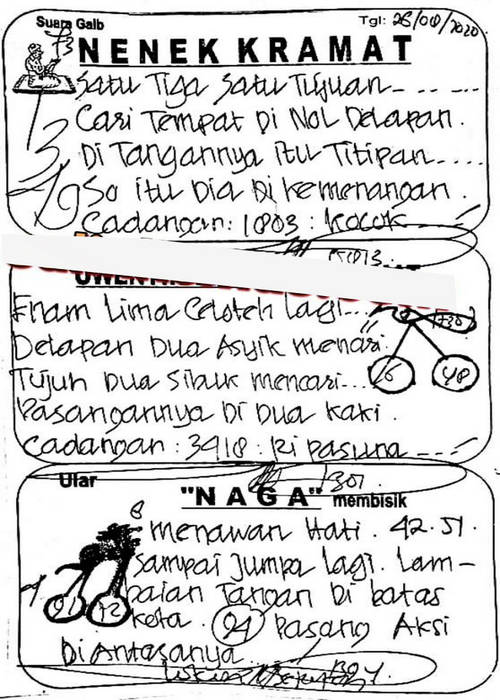 Suara Gaib
Tgl: 26/08/2020
NENEK KRAMAT
Satu Tiga Satu Tujuan
Cari Tempat Di Nol Delapan.
Di Tangannya itu Titipan....
So itu Dia Di kemenangan.
Cadangan: 1803: kocok
Enam Lima Celoteh lagi...
Delapan Dua Asyik menari.
Tujuh Dua Sibuk mencari...
Pasangannya Di Dua kaki.
48
Cadangan: 3918: Ri pasuna
1301
Ular
"NAGA" membisik
8
menawan Hati. 42.51.
Sampai Jumpa lagi. Lam-
paian Tangan Di batas
kota. 94 Pasang Aksi
72
Di Antasanya